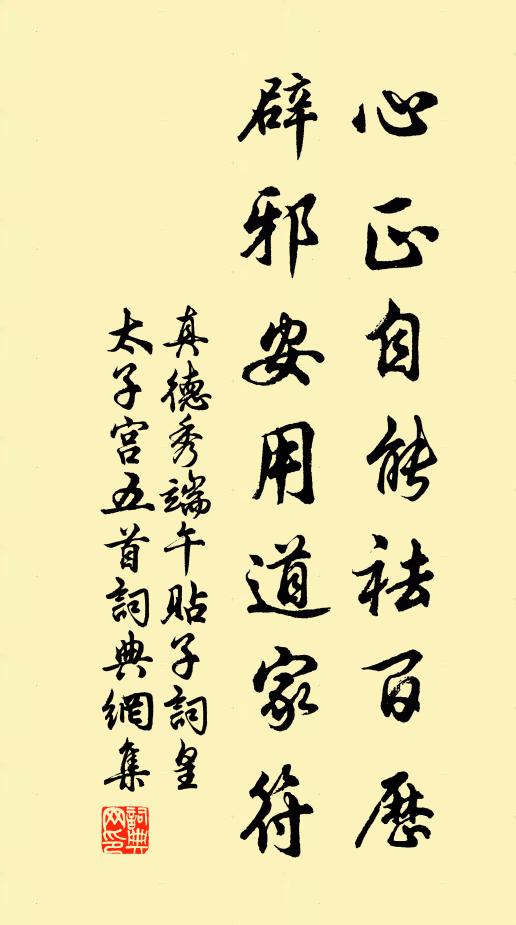 心正自能祛百歷
辟邪安用道家符
真德秀端午貼子詞皇
太子宮五首詞典網集
詞典
網印